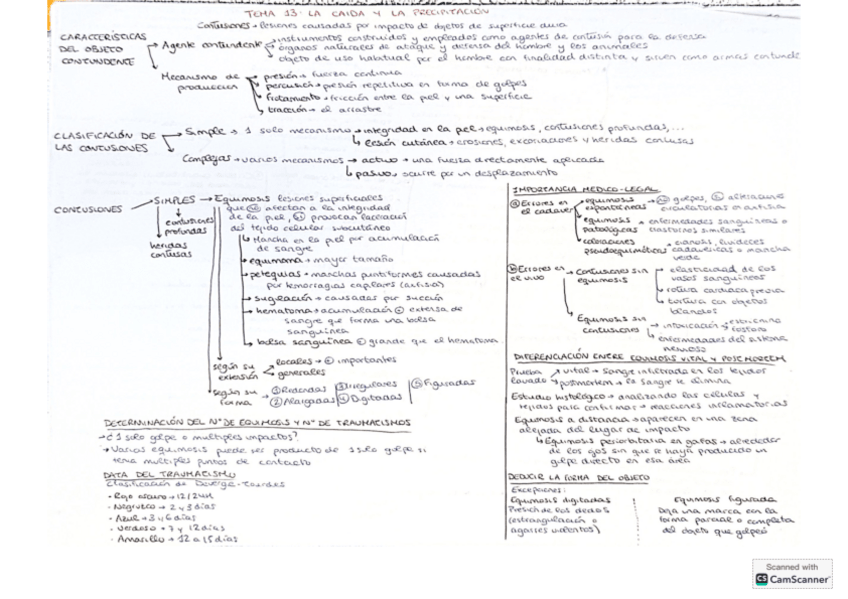 TEMA 13: LA CAIDA Y LA PRECIPITACIÓN
Contusiones → lesiones causadas por impacto de objetos de superficie dura
CARACTERÍSTICAS DEL OBJETO CONTUNDENTE
Agente contundente
instrumentos construidos y empleados como agentes de contusión para la defensa
órganos naturales de ataque y defensa del hombre y los animales
objeto de uso habitual por el hombre con finalidad distinta y sirven como armas contunde
Mecanismo de producción
presión → fuerza continua
percusión → presión repetitiva en forma de golpes
frotamiento → fricción entre la piel y una superficie
tracción → el arrastre
CLASIFICACIÓN DE LAS CONTUSIONES
Simple → 1 solo mecanismo → integridad en la piel → equimosis, contusiones profundas,...
Lesión cutánea → erosiones, excoriaciones y heridas contusas
Complejas → varios mecanismos → activo → una fuerza directamente aplicada
pasivo → ocurre por un desplazamiento
CONTUSIONES
SIMPLES → Equimosis lesiones superficiales
que no afectan a la integridad
de la piel, provocan laceración
del tejido celular subcutáneo
contusiones profundas
heridas contusas
Mancha en la piel por acumulación
de sangre
equimoma → mayor tamaño
petequias → manchas puntiformes causadas
por hemorragias capilares (asfixia)
sugilación → causadas por succión
hematoma → acumulación ⊕ extensa de
sangre que forma una bolsa
sanguínea
bolsa sanguínea ⊕ grande que el hematoma
según su extensión
locales → ⊕ importantes
generales
según su forma
① Redondas ③ Irregulares ⑤ Figuradas
② Alargadas ④ Digitadas
DETERMINACIÓN DEL Nº DE EQUIMOSIS Y Nº DE TRAUMATISMOS
→ ¿1 solo golpe o multiples impactos?
→ Varias equimosis puede ser producto de 1 solo golpe si
tenia multiples puntos de contacto
DATA DEL TRAUMATISMO
Clasificación de Deverge-Tourdes
• Rojo oscuro → 12/24H
• Negruzco → 2 y 3 días
• Azul → 3 y 6 días
• Verdoso → 7 y 12 días
• Amarillo → 12 a 15 días
IMPORTANCIA MEDICO-LEGAL
ⓐ Errores en el cadaver
equimosis espontáneas → golpes, alteraciones
circulatorias en asfixia
equimosis patológicas → enfermedades sanguíneas o
trastornos similares
coloraciones pseudoequimóticas → cianosis, livideces
cadavéricas o mancha
verde
ⓑ Errores en el vivo
Contusiones sin equimosis
elasticidad de los
vasos sanguíneos
rotura cardiaca previa
tortura con objetos
blandos
Equimosis sin contusiones
intoxicación → estricnina
fosforo
enfermedades del sistema
nervioso
DIFERENCIACIÓN ENTRE EQUIMOSIS VITAL Y POSTMORTEM
Prueba lavado
vital → sangre infiltrada en los tejidos
postmortem → la sangre se elimina
Estudio histológico → analizando las células y
tejidos para confirmar → reacciones inflamatorias
Equimosis a distancia → aparecen en una zona
alejada del lugar de impacto
Equimosis periorbitaria en gafas → alrededor
de los ojos sin que se haya producido un
golpe directo en esa área
DEDUCIR LA FORMA DEL OBJETO
Excepciones:
Equimosis digitadas
Presión de los dedos
(estrangulación o
agarres violentos)
Equimosis figurada
Deja una marca con la
forma parcial o completa
del objeto que golpeó
Scanned with
CS CamScanner